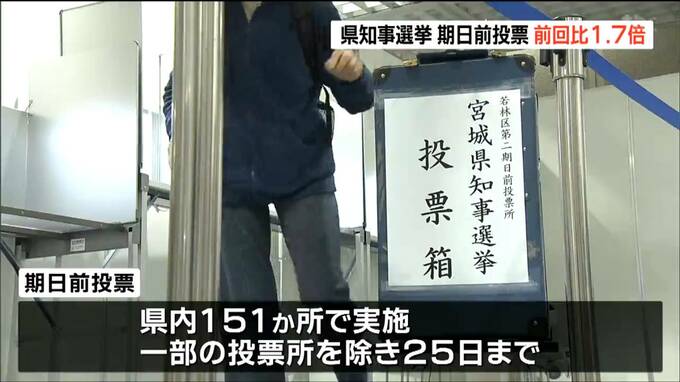 県知事選挙 期日前投票 前回比1.7倍
若林区第二期日前投票所
宮城県知事選挙
投票箱
期日前投票
県内151か所で実施
一部の投票所を除き25日まで